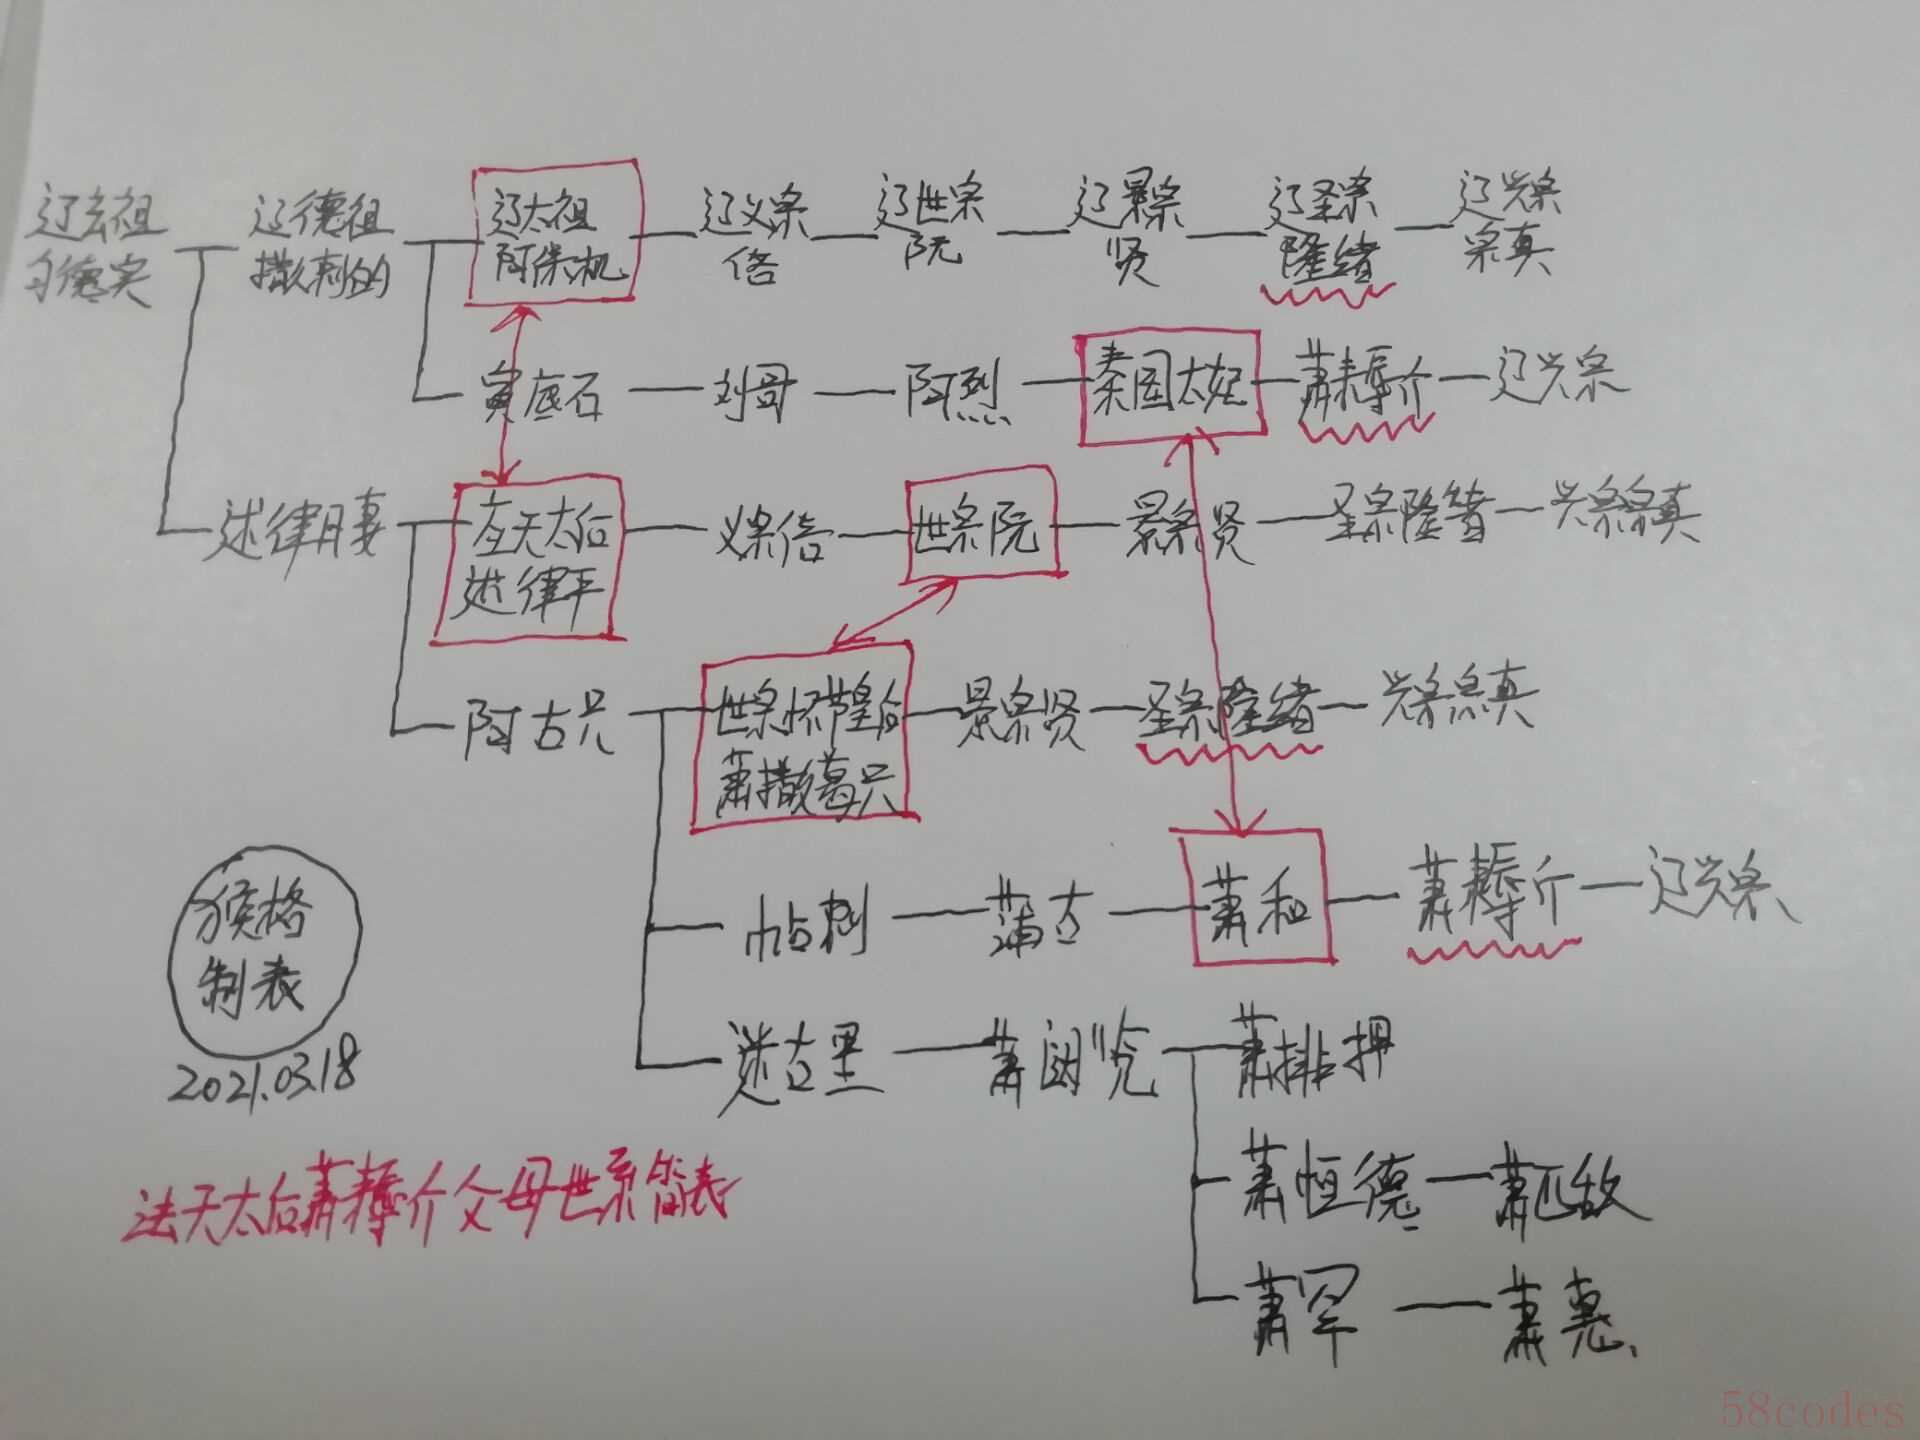 辽玄祖 匀德实
辽德祖 撒剌的
辽太祖 阿保机
辽义宗 倍
辽世宗 阮
辽景宗 贤
辽圣宗 隆绪
辽兴宗 宗真
寅底石
刘哥
阿烈
秦国太妃
萧耨斤
辽兴宗
述律月妻
应天太后 述律平
义宗倍
世宗阮
景宗贤
圣宗隆绪
兴宗宗真
阿古只
世宗怀节皇后 萧撒葛只
景宗贤
圣宗隆绪
兴宗宗真
帖剌
蒲古
萧和
萧耨斤
辽兴宗
迷古里
萧闼览
萧排押
萧恒德
萧匹敌
萧罕
萧惠
猴格
制表
2021.03.18
法天太后萧耨斤父母世系简表
58codes